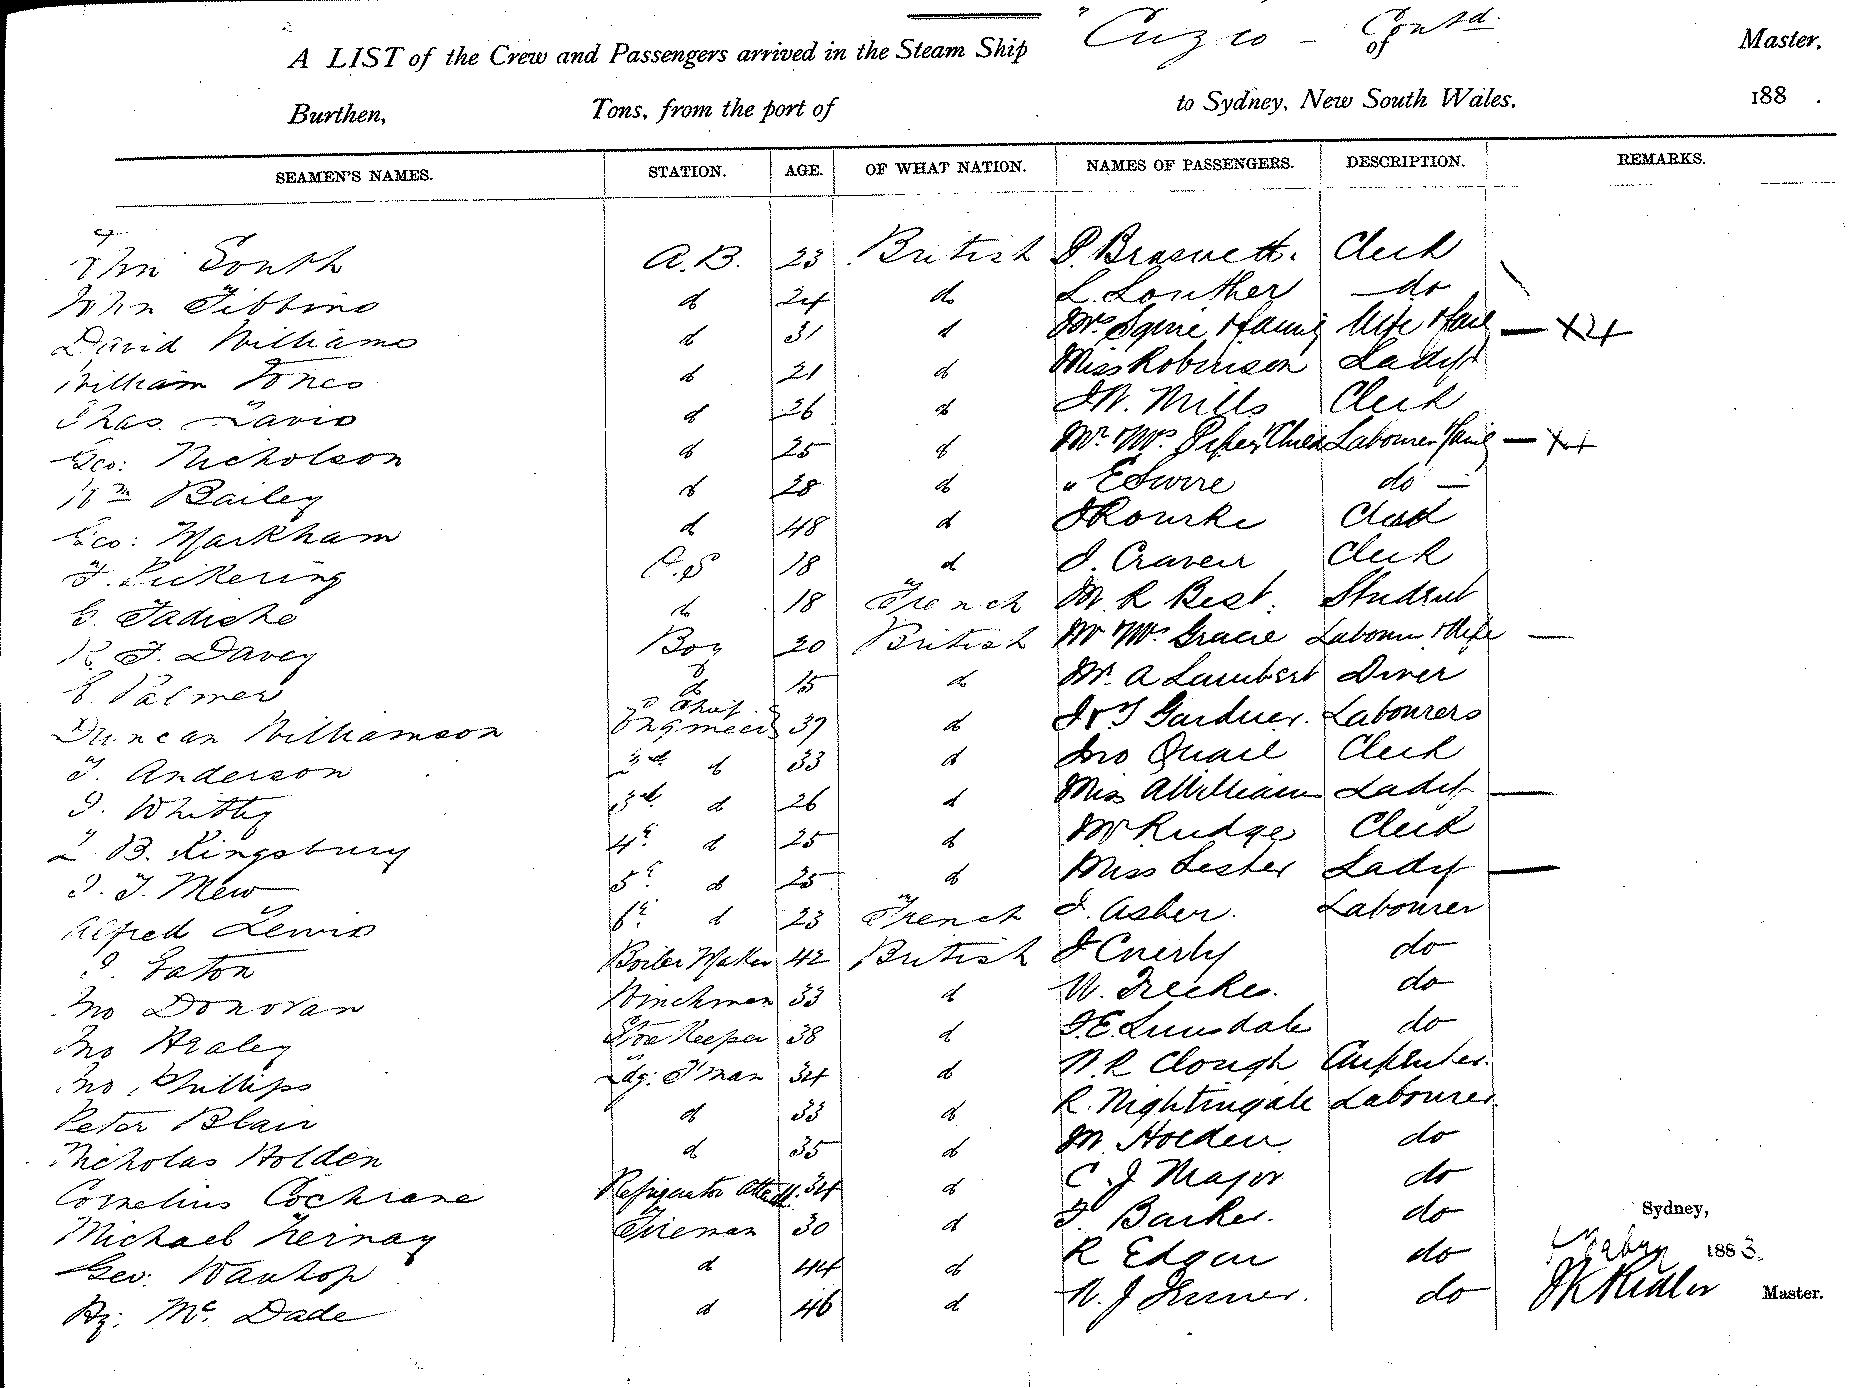 "Cuzco - Contd
A LIST of the Crew and Passengers arrived in the Steam Ship of Master,
Burthen, Tons, from the port of to Sydney, New South Wales, 188 .
SEAMEN'S NAMES. STATION. AGE. OF WHAT NATION. NAMES OF PASSENGERS. DESCRIPTION. REMARKS.
South A.B. 23 British Clerk
John Tibbins d 24 d L. Louther do
David Williams d 31 d Mrs Squire & family Wife & fam — X4
William Jones d 21 d Miss Robinson Lady
Thas. Davis d 26 d J W. Mills Clerk
Geo: Nicholson d 25 d Mr & Mrs Piper Labourer & fam —
Wm Bailey d 28 d " E Swire do —
Geo: Markham d 48 d J Rourke Clerk
F. Pickering O.S 18 d J. Craven Clerk
d 18 French M. R Best. Student
R. J. Davey Boy 20 British Mr & Mrs Gracie Labourer & Wife —
E. Palmer d 15 d Mr. A Lambert Diver
Duncan Williamson Chief Engineer 39 d J & T Gardner. Labourers
J. Anderson 2nd d 33 d Jno Quail Clerk
J. Whitty 3rd d 26 d Miss A Williams Lady —
L. B. Kingsbury 4th d 25 d Mr Rudge Clerk
J. J. Mew 5th d 25 d Miss Lester Lady —
Alfred Lewis 6th d 23 French J. Asher. Labourer
J. Eaton Boiler Maker 42 British J do
Jno Donovan Winchman 33 d W. do
Jno Healey Storekeeper 38 d J E. Lunsdale do
Jno Phillips Ldg: F'man 34 d W. R Clough Carpenter.
Peter Blair d 33 d R. Nightingale Labourer
Nicholas Holden d 35 d M. Holden do
Cornelius Cochrane Refrigerator Attendt. 34 d C. J Major do
Michael Tierney Fireman 30 d F. Barker. do
Geo: Wauhop d 44 d R Edgar do
Hy: Mc Dade d 46 d W. J Turner. do
Sydney,
1883.
Master.